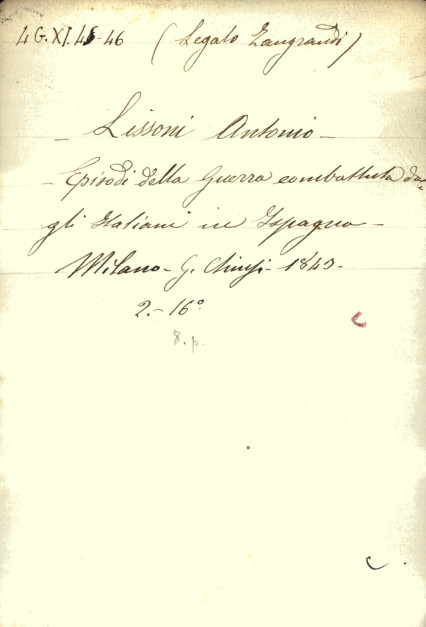 4 G. XI. 45-46 (Legato Zangrandi)
- Lissoni Antonio -
- Episodi della Guerra combattuta da-
gli Italiani in Ispagna -
Milano - G. Chiusi - 1843 -
2. - 16°
8. p.